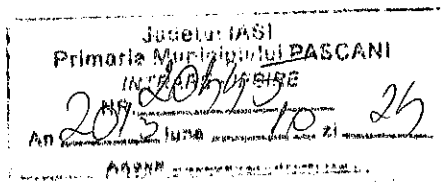 Judetul IASI
Primaria Municipiului PASCANI
INTRARE / IESIRE
NR.
An 2013 luna 10 zi 24